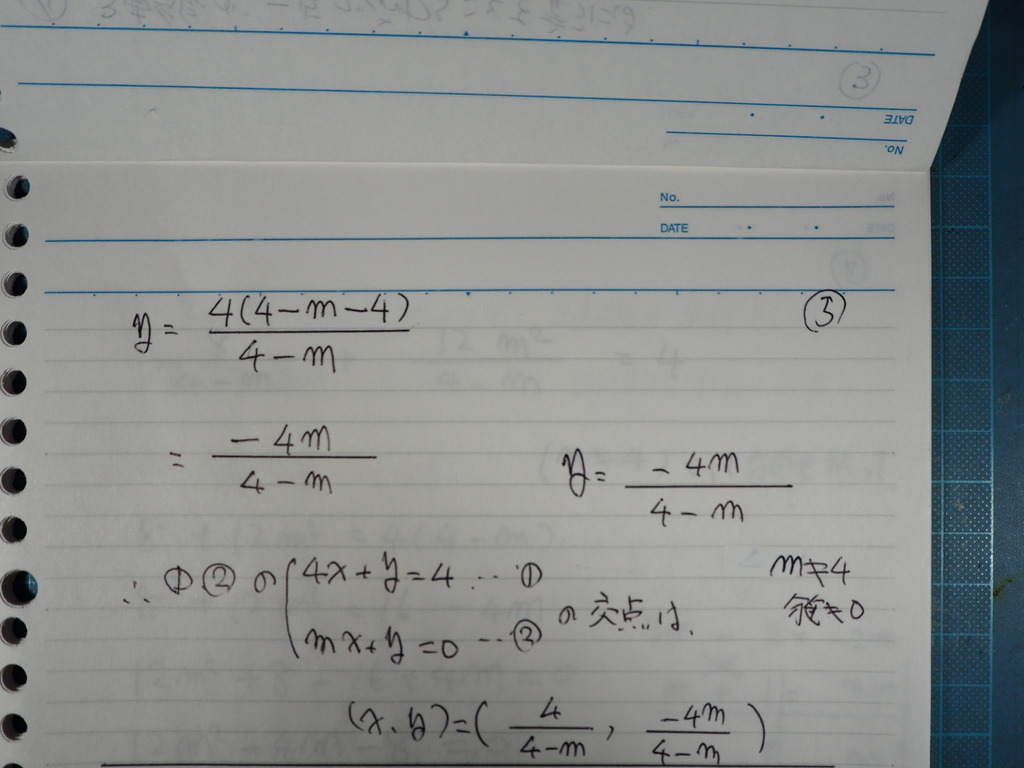 ③
DATE
No.
No.
DATE
⑤
y = 4(4-m-4) / 4-m
= -4m / 4-m
y = -4m / 4-m
∴ ①②の { 4x+y=4 … ①
mx+y=0 … ② の交点は、
m≠4
分母≠0
(x, y) = ( 4 / 4-m , -4m / 4-m )